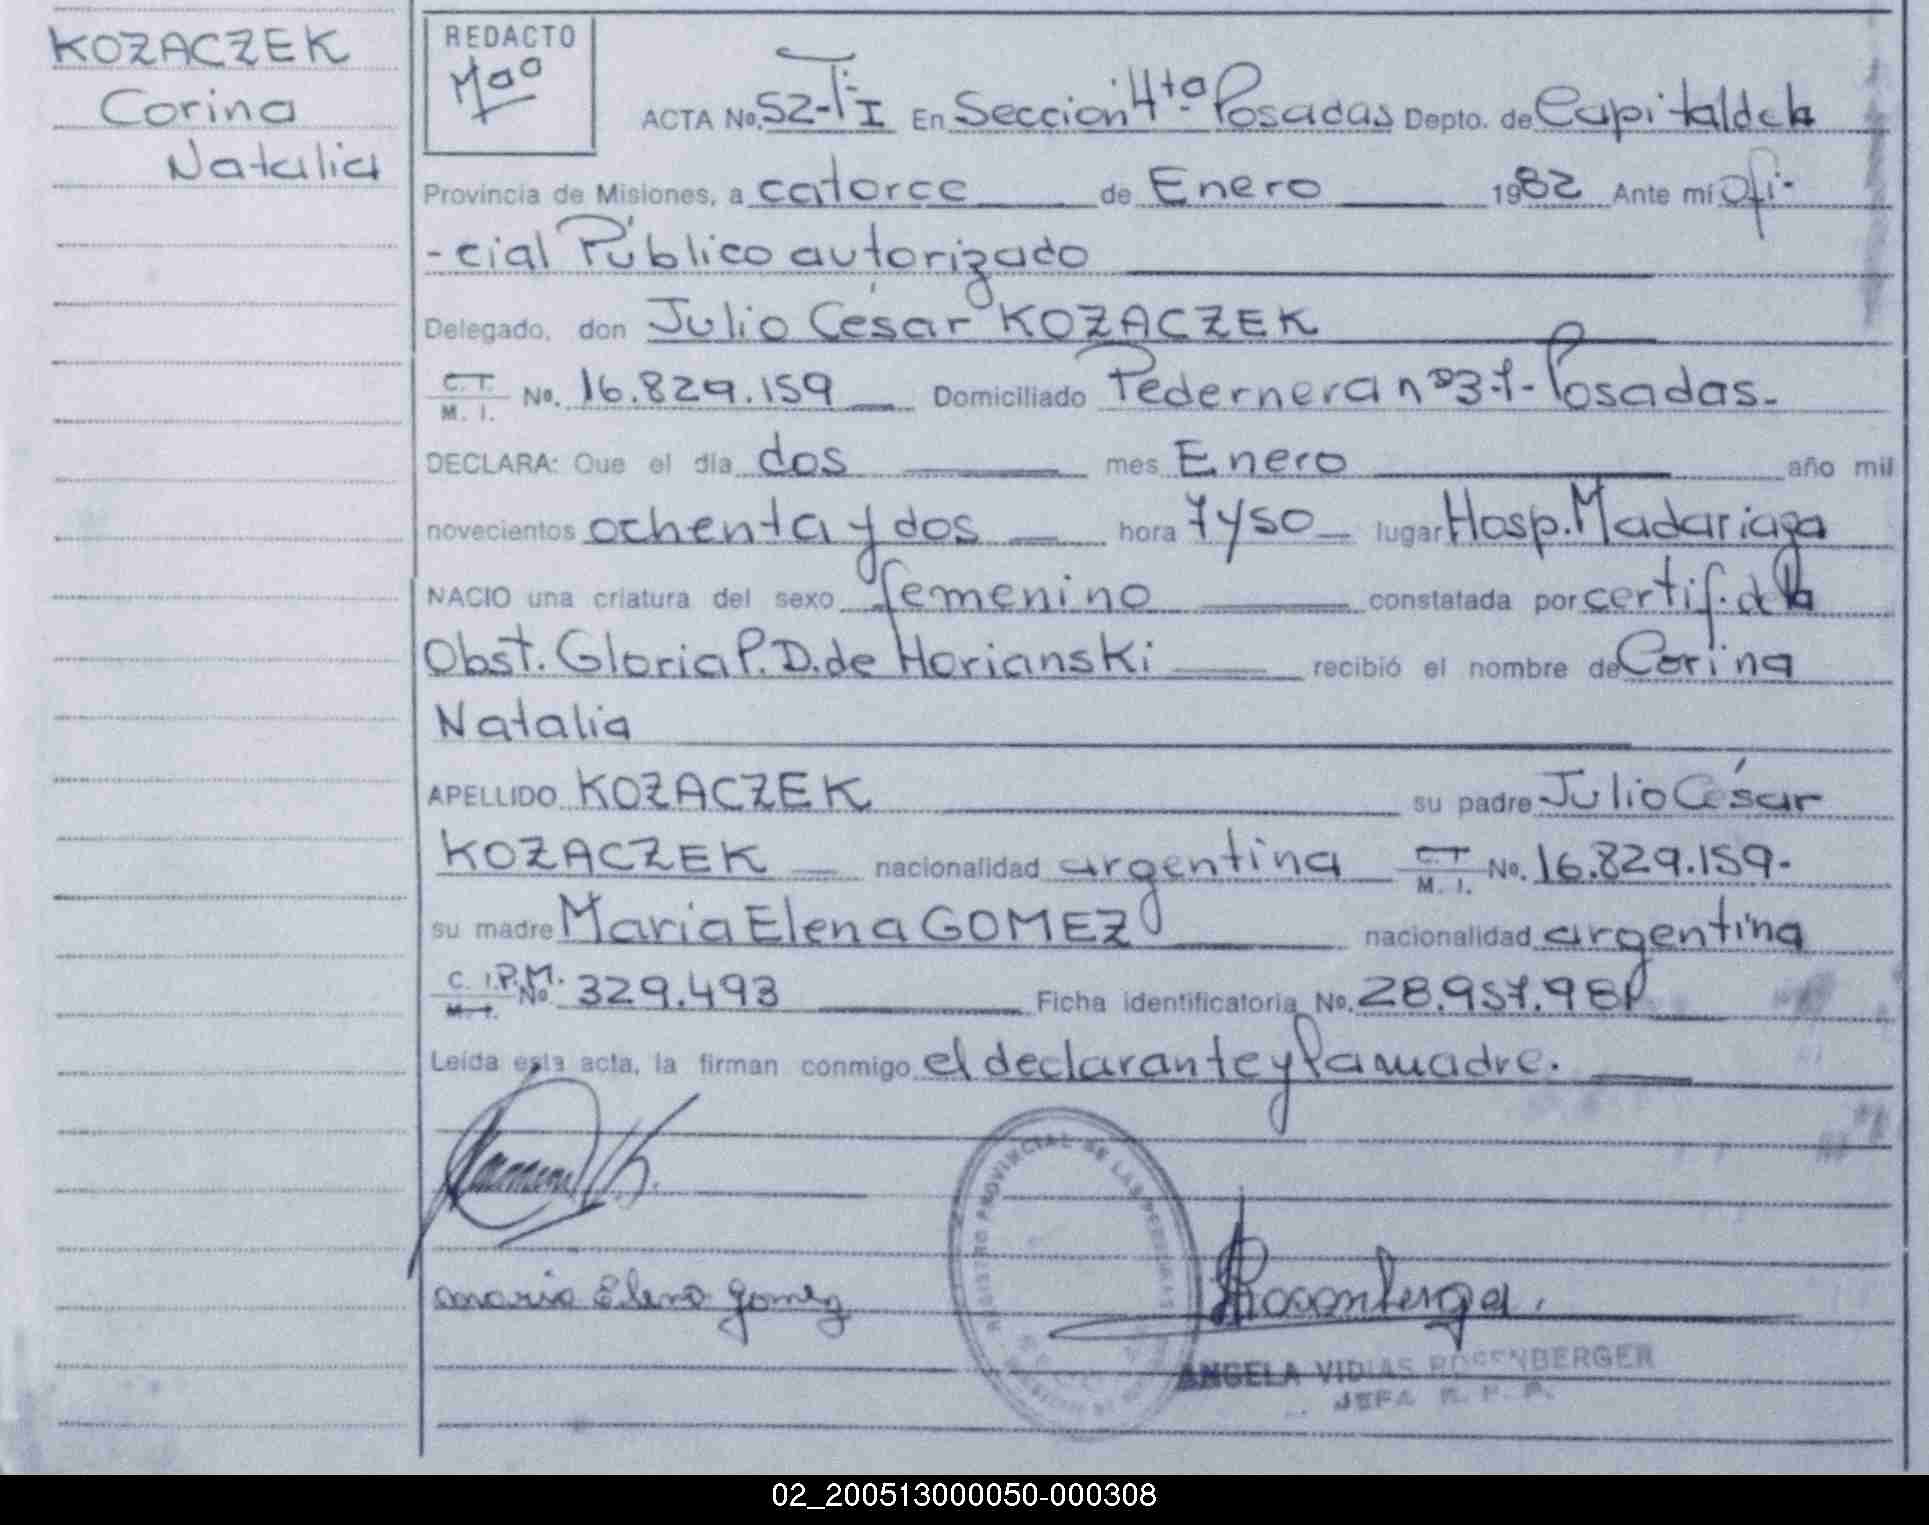 KOZACZEK
Corina
Natalia
REDACTO
ACTA No. 52-TºI En Sección 4ta Posadas Depto. de Capital de la
Provincia de Misiones, a catorce de Enero 1982 Ante mí Ofi-
-cial Público autorizado
Delegado, don Julio César KOZACZEK
C.I. M. I. No. 16.829.159 Domiciliado Pedernera nº 37- Posadas.-
DECLARA: Que el día dos mes Enero año mil
novecientos ochenta y dos hora 7 y 50 lugar Hosp. Madariaga
NACIO una criatura del sexo femenino constatada por certif. de la
Obst. Gloria P. D. de Horianski recibió el nombre de Corina
Natalia
APELLIDO KOZACZEK su padre Julio César
KOZACZEK nacionalidad argentina C.I. M. I. No. 16.829.159-
su madre Maria Elena GOMEZ nacionalidad argentina
C. I.P.M. M. I. No. 329.493 Ficha identificatoria No. 28.957.981
Leída esta acta, la firman conmigo el declarante y la madre.
REGISTRO PROVINCIAL DE LAS PERSONAS
maria Elena Gomez
Rosenberger
ANGELA VIDIAS ROSENBERGER
JEFA R. P. P.
02_200513000050-000308